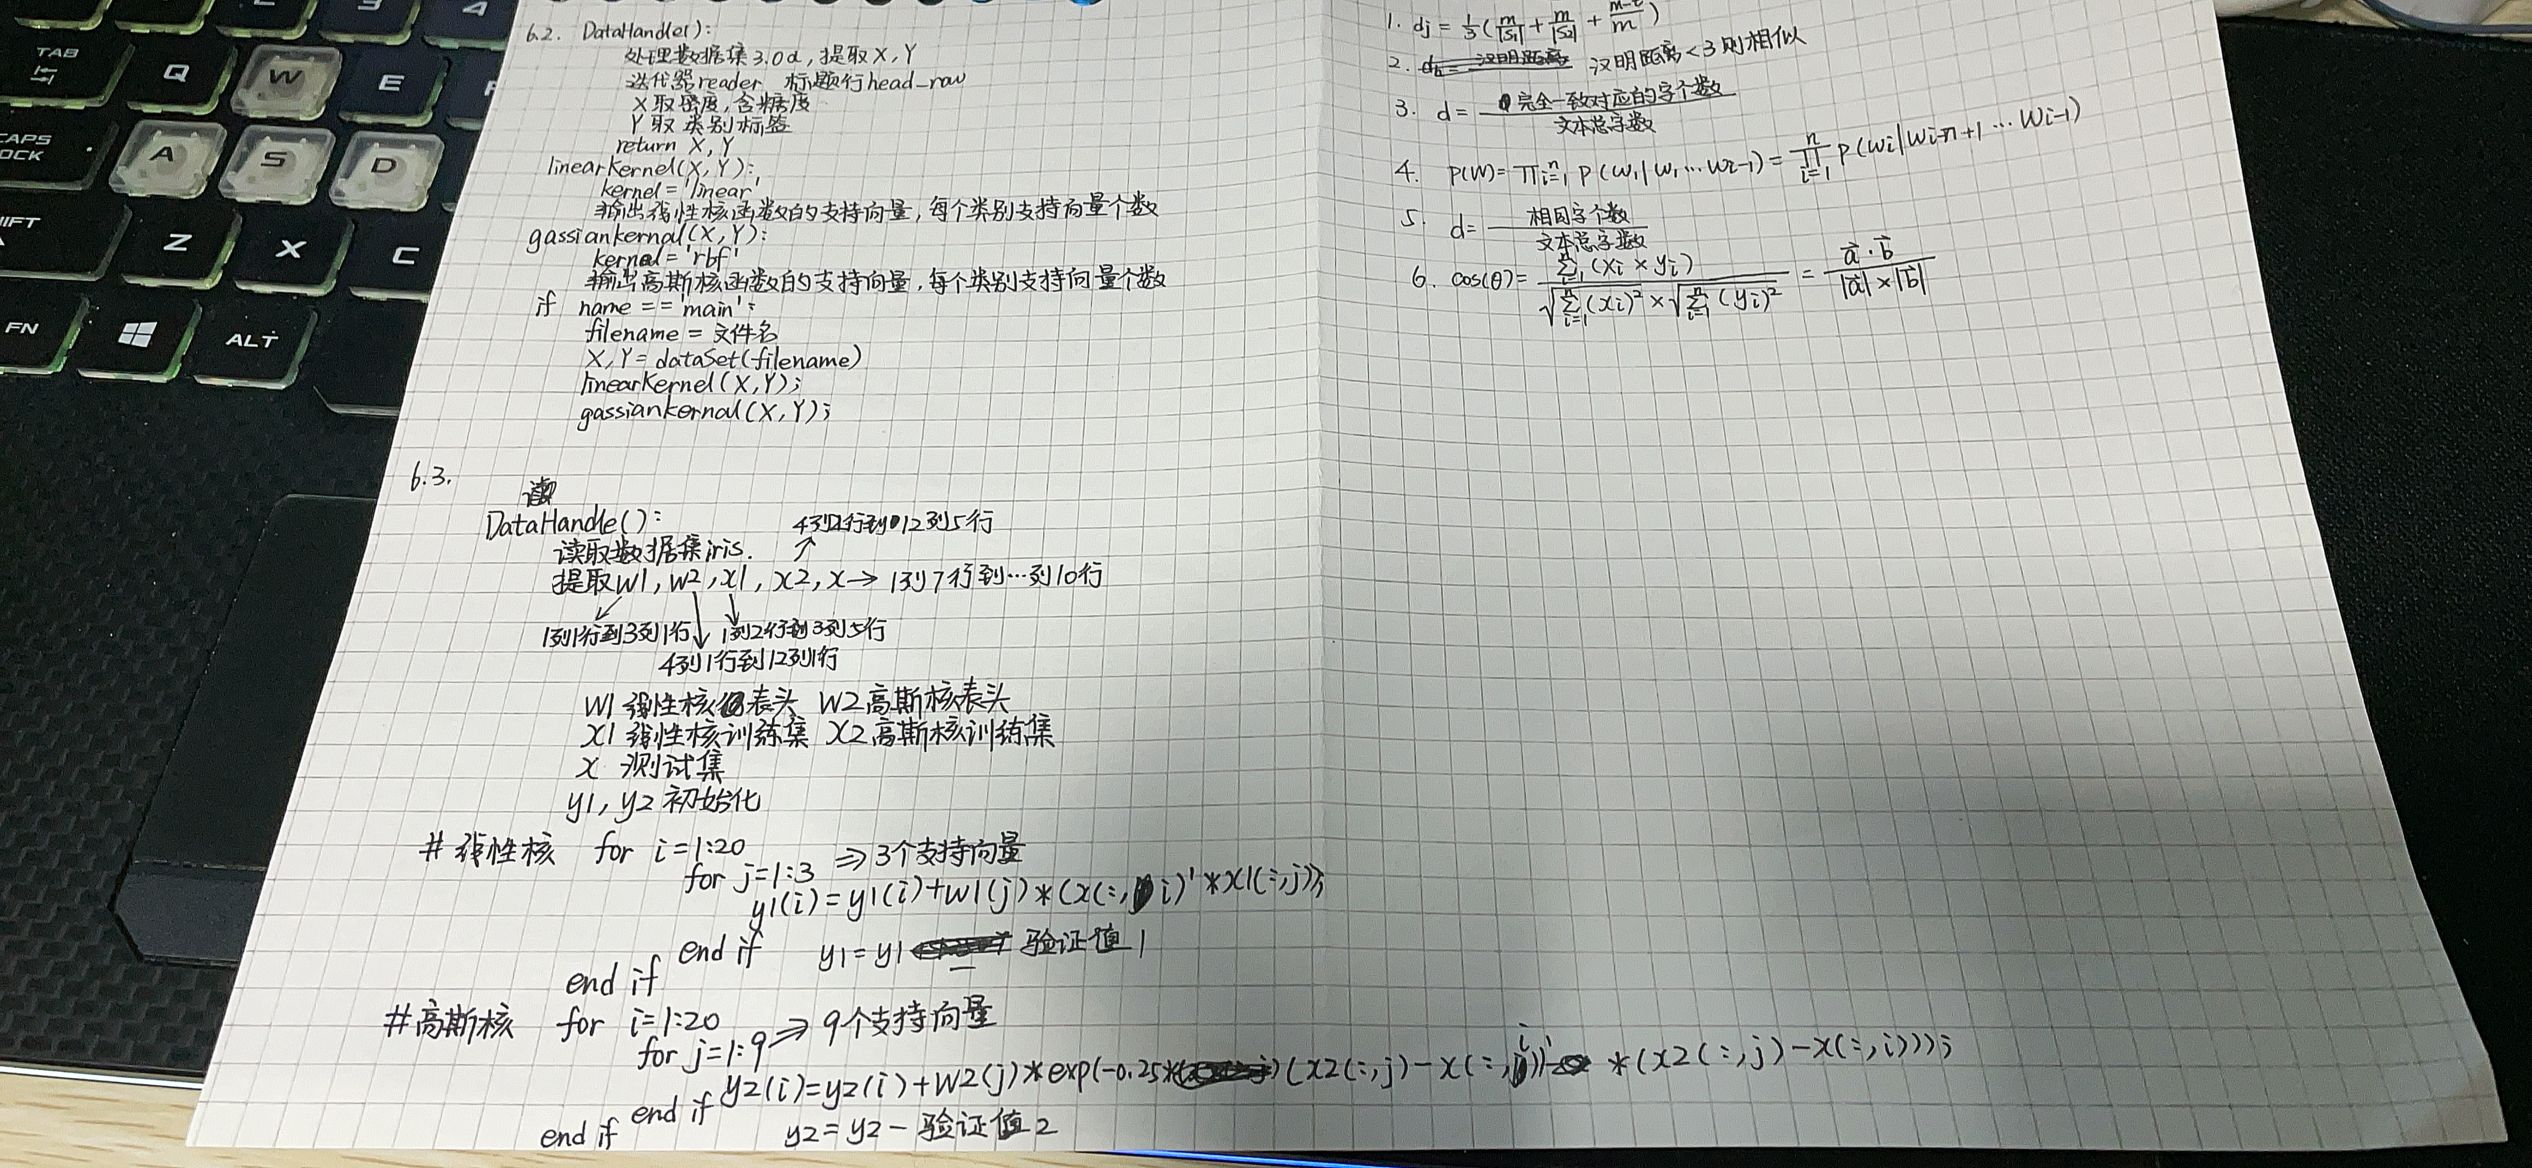 6.2. DataHandle():
处理数据集3.0α,提取X,Y
迭代器reader 标题行head_row
X取密度,含糖度
Y取类别标签
return X,Y
linearKernel(X,Y):
kernel='linear'
输出线性核函数的支持向量,每个类别支持向量个数
gassiankernal(X,Y):
kernel='rbf'
输出高斯核函数的支持向量,每个类别支持向量个数
if name=='main':
filename=文件名
X,Y=dataSet(filename)
linearKernel(X,Y);
gassiankernal(X,Y);
6.3.
DataHandle():
4列2行到12列5行
读取数据集iris.
提取w1,w2,x1,x2,x→1列7行到…列10行
1列1行到3列1行 1列2行到3列5行
4列1行到12列1行
W1线性核表头 W2高斯核表头
X1线性核训练集 X2高斯核训练集
x 测试集
y1,y2初始化
#线性核 for i=1:20
for j=1:3 ⇒3个支持向量
y1(i)=y1(i)+w1(j)*(x(:,i)'*x1(:,j));
end if y1=y1 - 验证值1
end if
#高斯核 for i=1:20
for j=1:9⇒9个支持向量
y2(i)=y2(i)+W2(j)*exp(-0.25*(x2(:,j)-x(:,i))'*(x2(:,j)-x(:,i)));
end if
end if y2=y2-验证值2
1. dj=1/3(m/|S1|+m/|S2|+m-t/m)
2. 汉明距离<3则相似
3. d=完全一致对应的字个数/文本总字数
4. P(W)=∏i=1^n P(w1|w1…wi-1)=∏i=1^n P(wi|wi-n+1…wi-1)
5. d=相同字个数/文本总字数
6. cos(θ)=∑i=1^n(xi×yi)/√∑i=1^n(xi)²×√∑i=1^n(yi)²=a⃗·b⃗/|a⃗|×|b⃗|
TAB
Q
W
E
CAPS
OCK
A
S
D
IFT
Z
X
C
FN
ALT
4